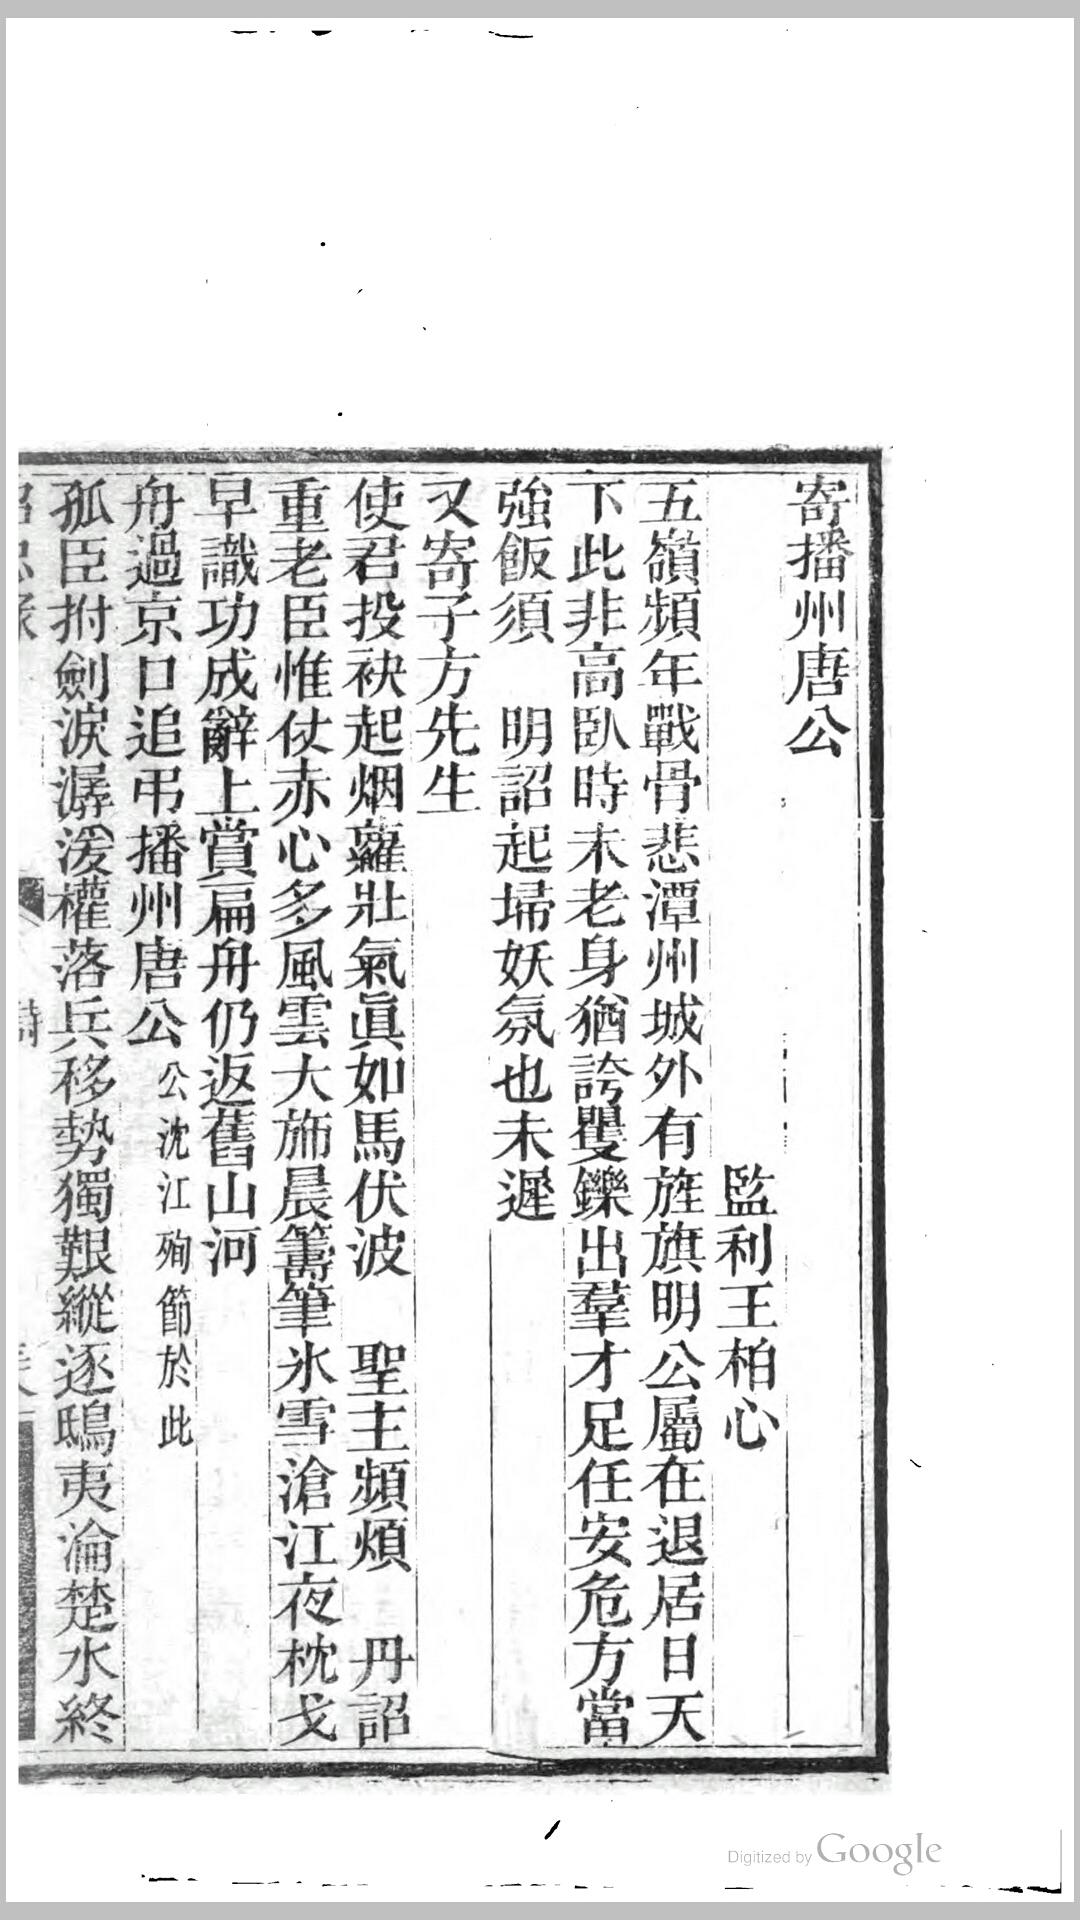 寄播州唐公
監利王柏心
五嶺頻年戰骨悲潭州城外有旌旗明公屬在退居日天
下此非高臥時未老身猶誇矍鑠出羣才足任安危方當
強飯須　明詔起埽妖氛也未遲
又寄子方先生
使君投袂起烟蘿壯氣眞如馬伏波　聖主頻煩　丹詔
重老臣惟仗赤心多風雲大斾晨籌筆氷雪滄江夜枕戈
早識功成辭上賞扁舟仍返舊山河
舟過京口追弔播州唐公公沈江殉節於此
孤臣拊劍淚潺湲權落兵移勢獨艱縱逐鴟夷淪楚水終
Digitized by Google